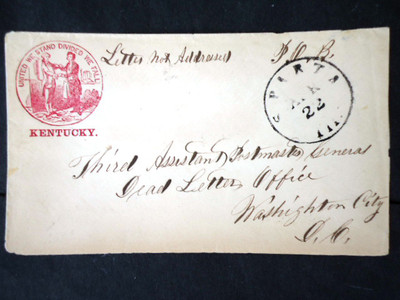 UNITED WE STAND DIVIDED WE FALL
KENTUCKY.
Letter Not Addressed
P.O.B.
SPARTA
22
Ill.
Third Assistant Postmaster General
Dead Letter Office
Washighton City
D.C.